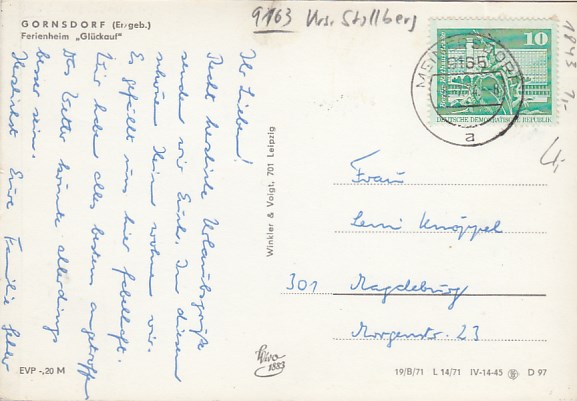 GORNSDORF (Erzgeb.)
Ferienheim „Glückauf"
9163 Krs. Stollberg
Ihr Lieben!
Recht herzliche Urlaubsgrüße
senden wir Euch. In diesem
schönen Heim wohnen wir.
Es gefällt uns hier fabelhaft.
Wir haben alles bestens angetroffen
Das Wetter könnte allerdings
besser sein.
Herzlichst Eure Familie
Winkler & Voigt, 701 Leipzig
10
DEUTSCHE DEMOKRATISCHE REPUBLIK
9165
a
1843 7,-
4,-
Frau
Leni Knöppel
301 Magdeburg
Morgenstr. 23
EVP -,20 M
1883
19/B/71 L 14/71 IV-14-45 D 97